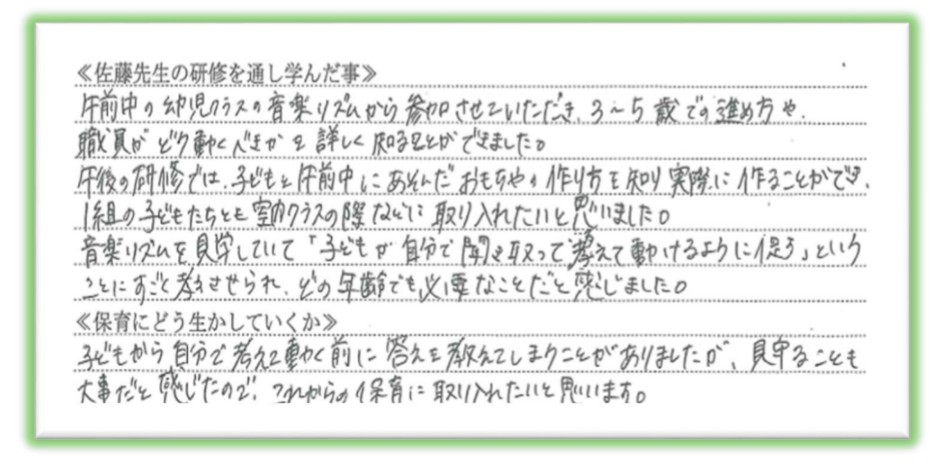 ≪佐藤先生の研修を通し学んだ事≫
午前中の幼児クラスの音楽リズムから参加させていただき、3～5歳での進め方や、
職員がどう動くべきかを詳しく知ることができました。
午後の研修では、子どもと午前中にあそんだおもちゃの作り方を知り実際に作ることができ、
1組の子どもたちとも室内クラスの際などに取り入れたいと思いました。
音楽リズムを見学していて「子どもが自分で聞き取って考えて動けるように促す」という
ことにすごく考えさせられ、どの年齢でも必要なことだと感じました。
≪保育にどう生かしていくか≫
子どもから自分で考えて動く前に答えを教えてしまうことがありましたが、見守ることも
大事だと感じたので、これからの保育に取り入れたいと思います。